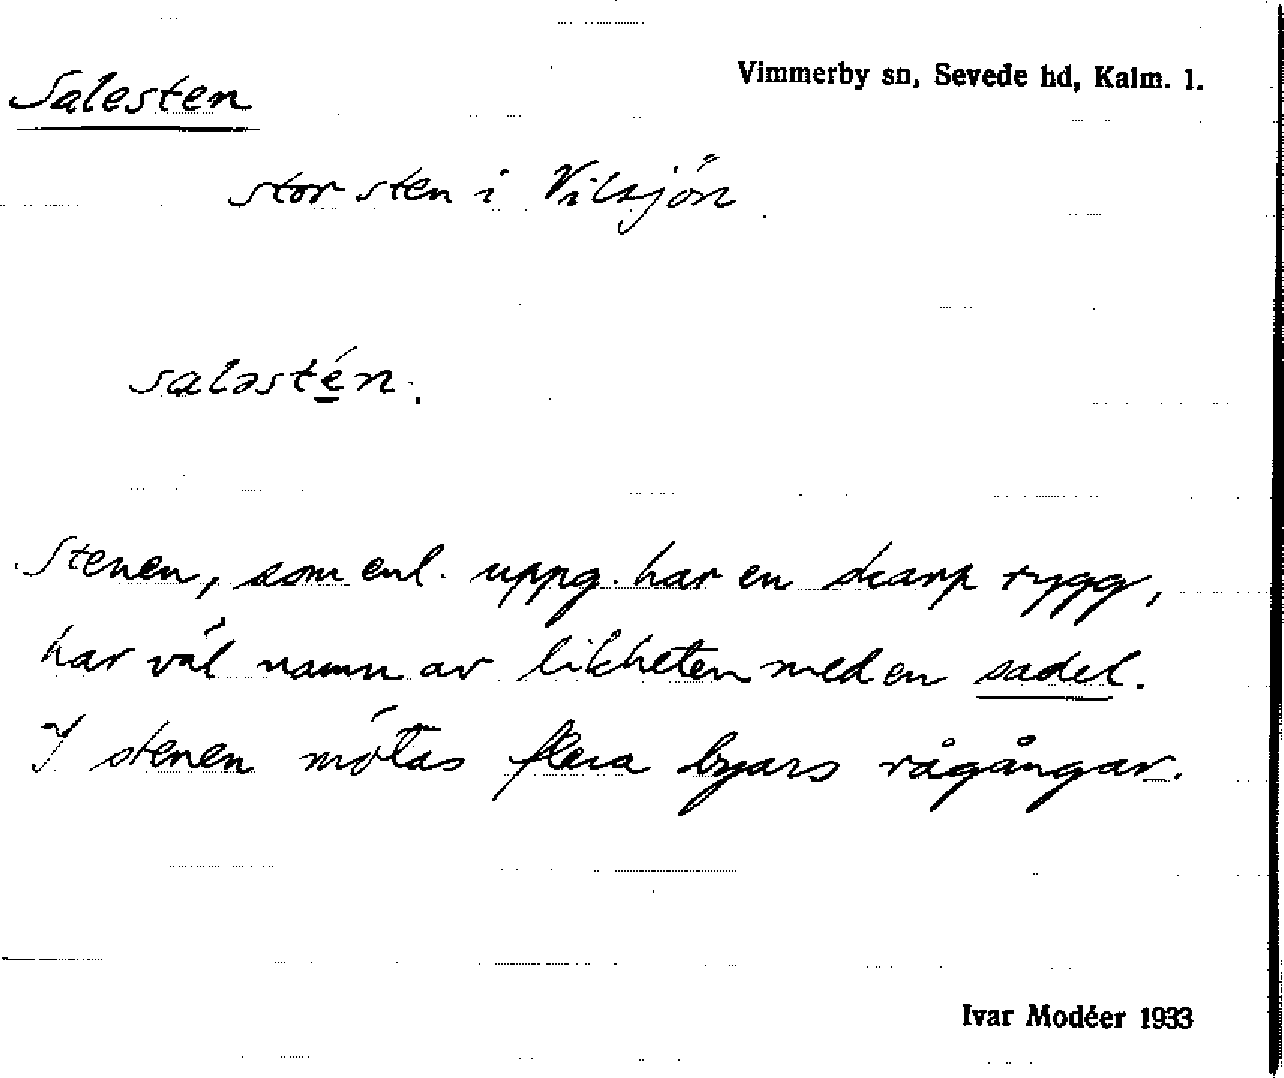 Salesten
Vimmerby sn, Sevede hd, Kalm. l.
stor sten i Vilsjön
saləstén.
Stenen, som enl. uppg. har en skarp rygg,
har väl namn av likheten med en sadel.
I stenen mötas flera byars rågångar.
Ivar Modéer 1933